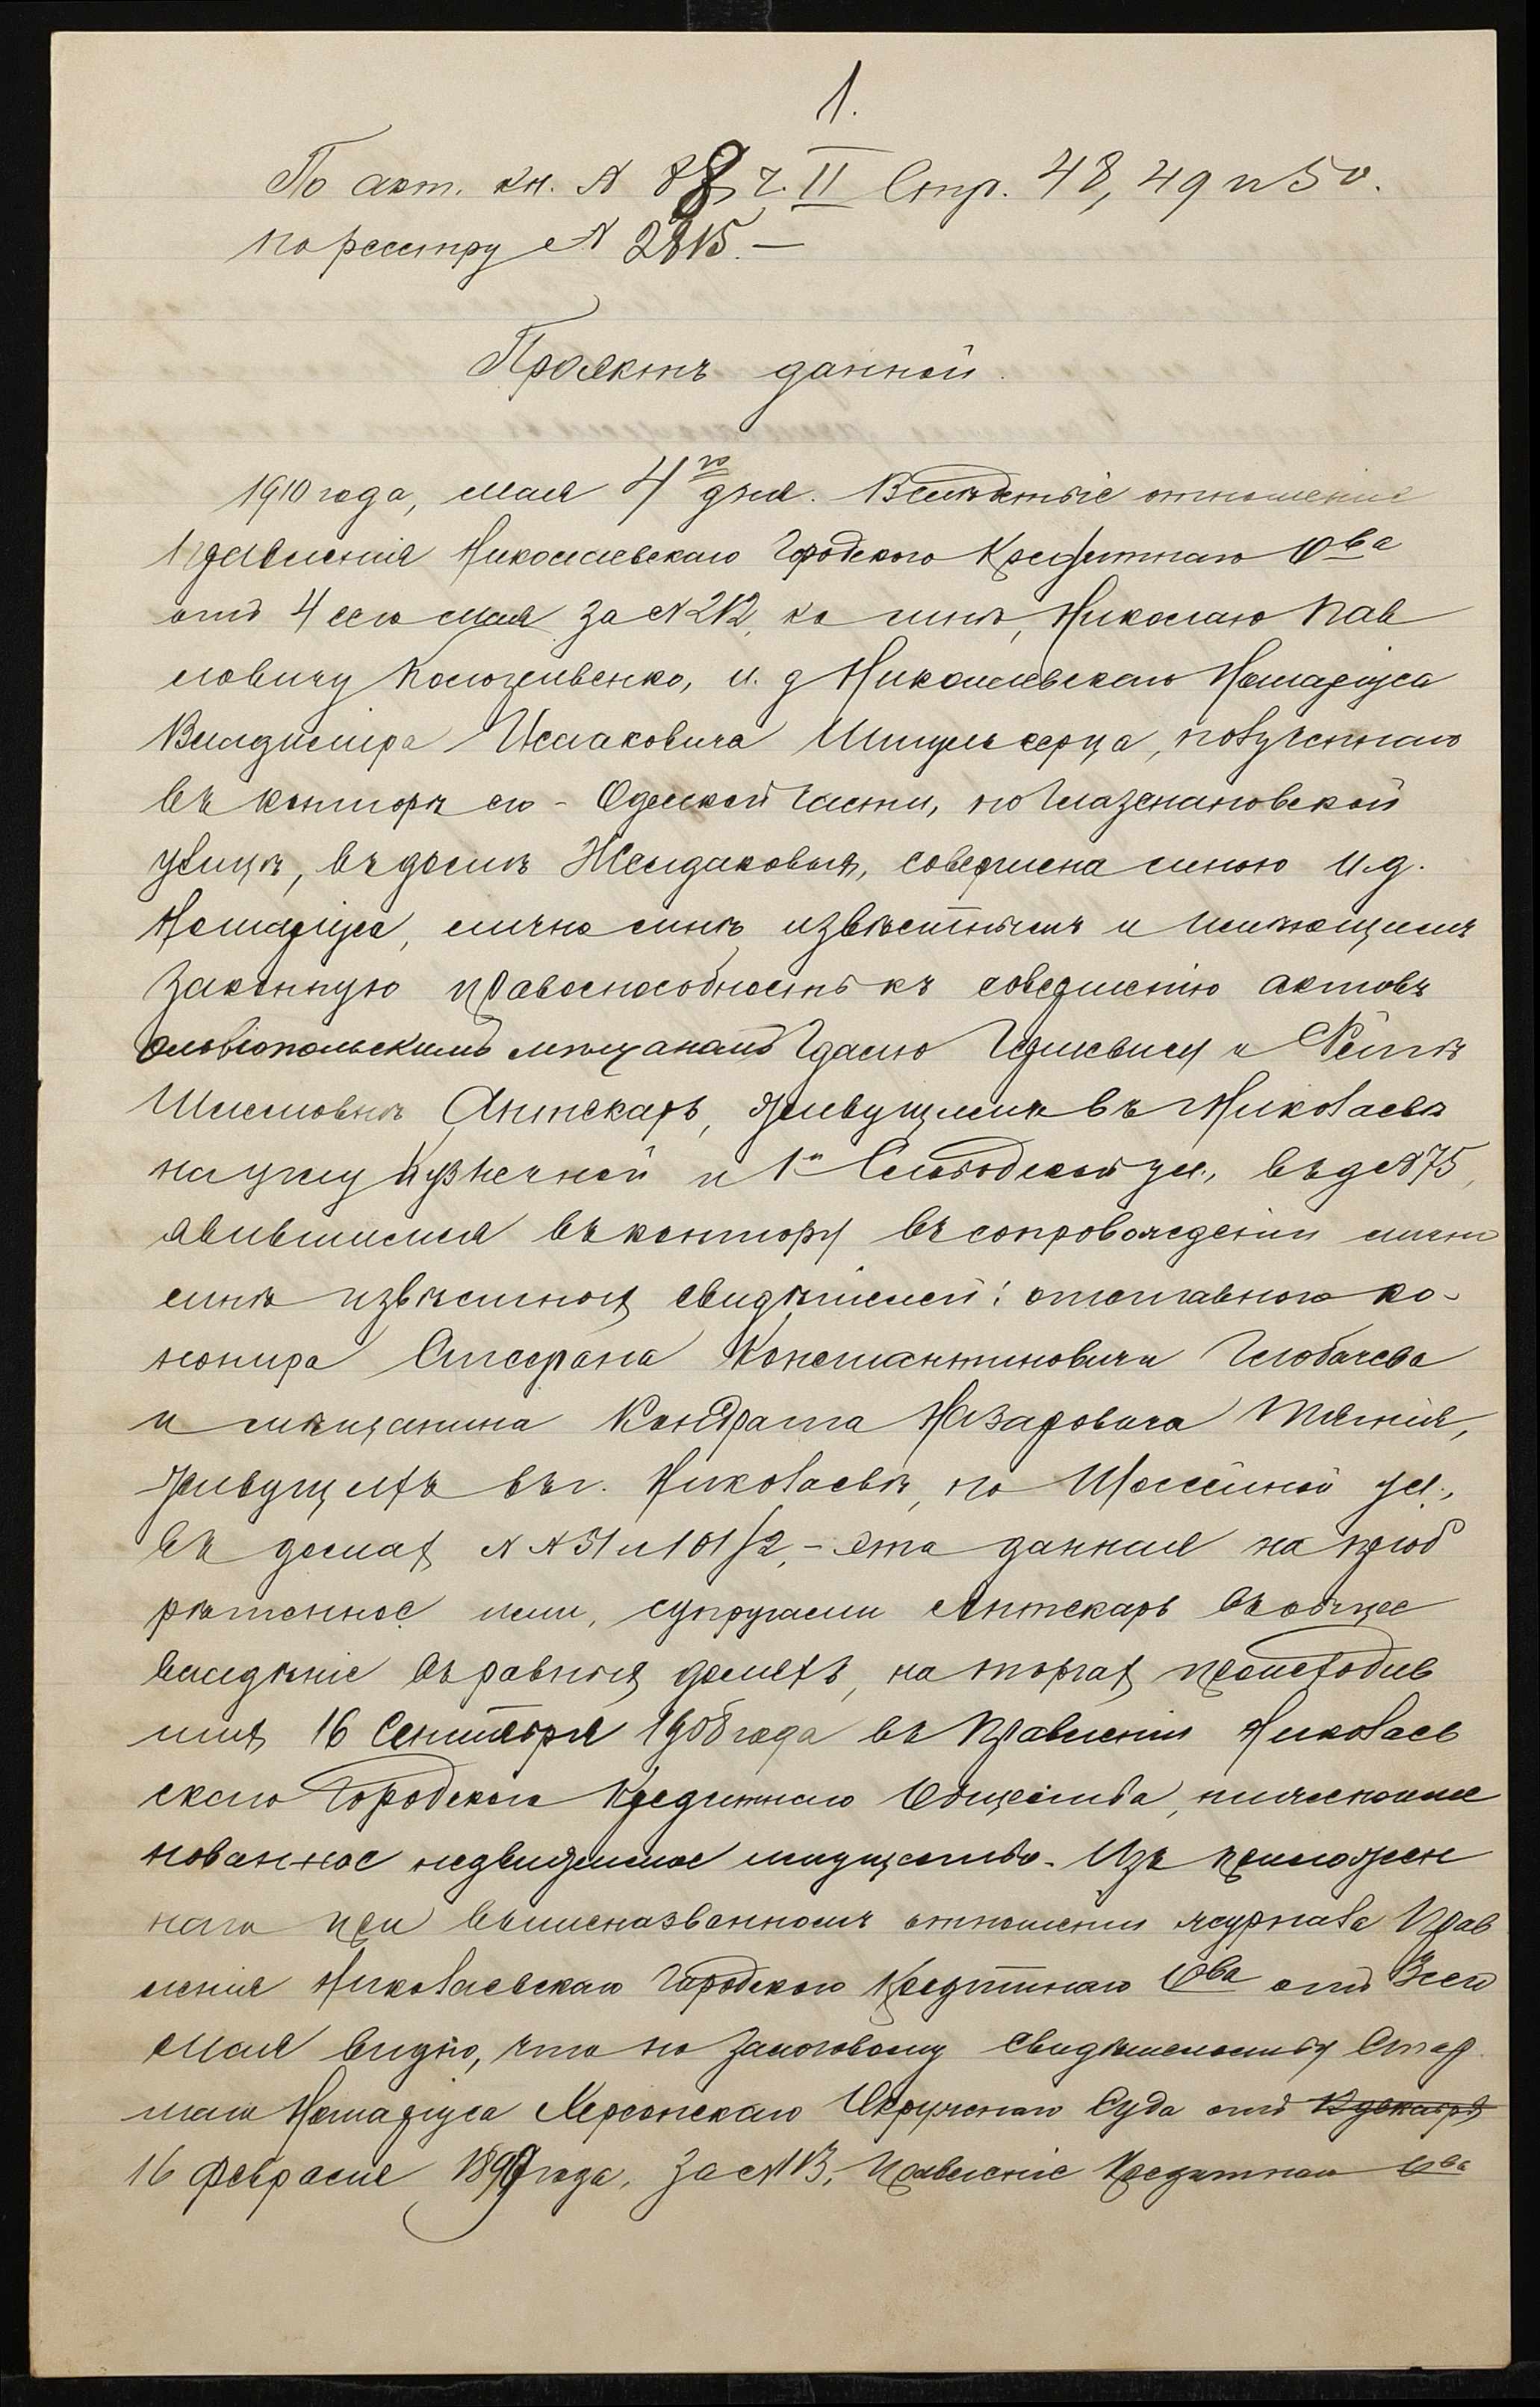 1.
По акт. кн. № 88, ч. II Стр. 48, 49 и 50.
по реестру № 2815. —
Проектъ данной.
1910 года, мая 4го дня. Вслѣдствіе отношенія
Правленія Николаевскаго Городского Кредитнаго Ова
отъ 4 сего мая за № 212, ко мнѣ, Николаю Пав
ловичу , и. д. Николаевскаго Нотаріуса
Владиміра Исааковича , полученнаго
въ конторѣ его - Одесской части, по
улицѣ, въ домѣ , совершена мною и. д.
Нотаріуса, лично мнѣ извѣстнымъ и имѣющимъ
законную правоспособность къ совершенію актовъ
Ольвіопольскимъ мѣщанамъ и
Аптекарь, живущимъ въ Николаевѣ
на углу Кузнечной и 1й Слободской ул., въ д № 75,
явившимся въ контору въ сопровожденіи лично
мнѣ извѣстныхъ свидѣтелей: отставного ко-
нонира Константиновича
и мѣщанина Кондрата Назаровича ,
живущихъ въ г. Николаевѣ, по ул.,
въ домахъ № № 31 и 101/2, - эта данная на пріоб
рѣтенное ими, супругами Аптекарь въ общее
владѣніе въ равныхъ доляхъ, на торгахъ происходив
шихъ 16 Сентября 1908 года въ Правленіи Николаев
скаго Городского Кредитнаго Общества, нижепоиме
нованное недвижимое имущество. Изъ приложен
наго при вышеназванномъ отношеніи журнала Прав
ленія Николаевскаго Городского Кредитнаго Ова отъ 3 сего
мая видно, что по залоговому свидѣтельству Стар
шаго Нотаріуса Херсонскаго Окружнаго Суда отъ
16 февраля года, за № 13, Правленіе Кредитнаго Ова